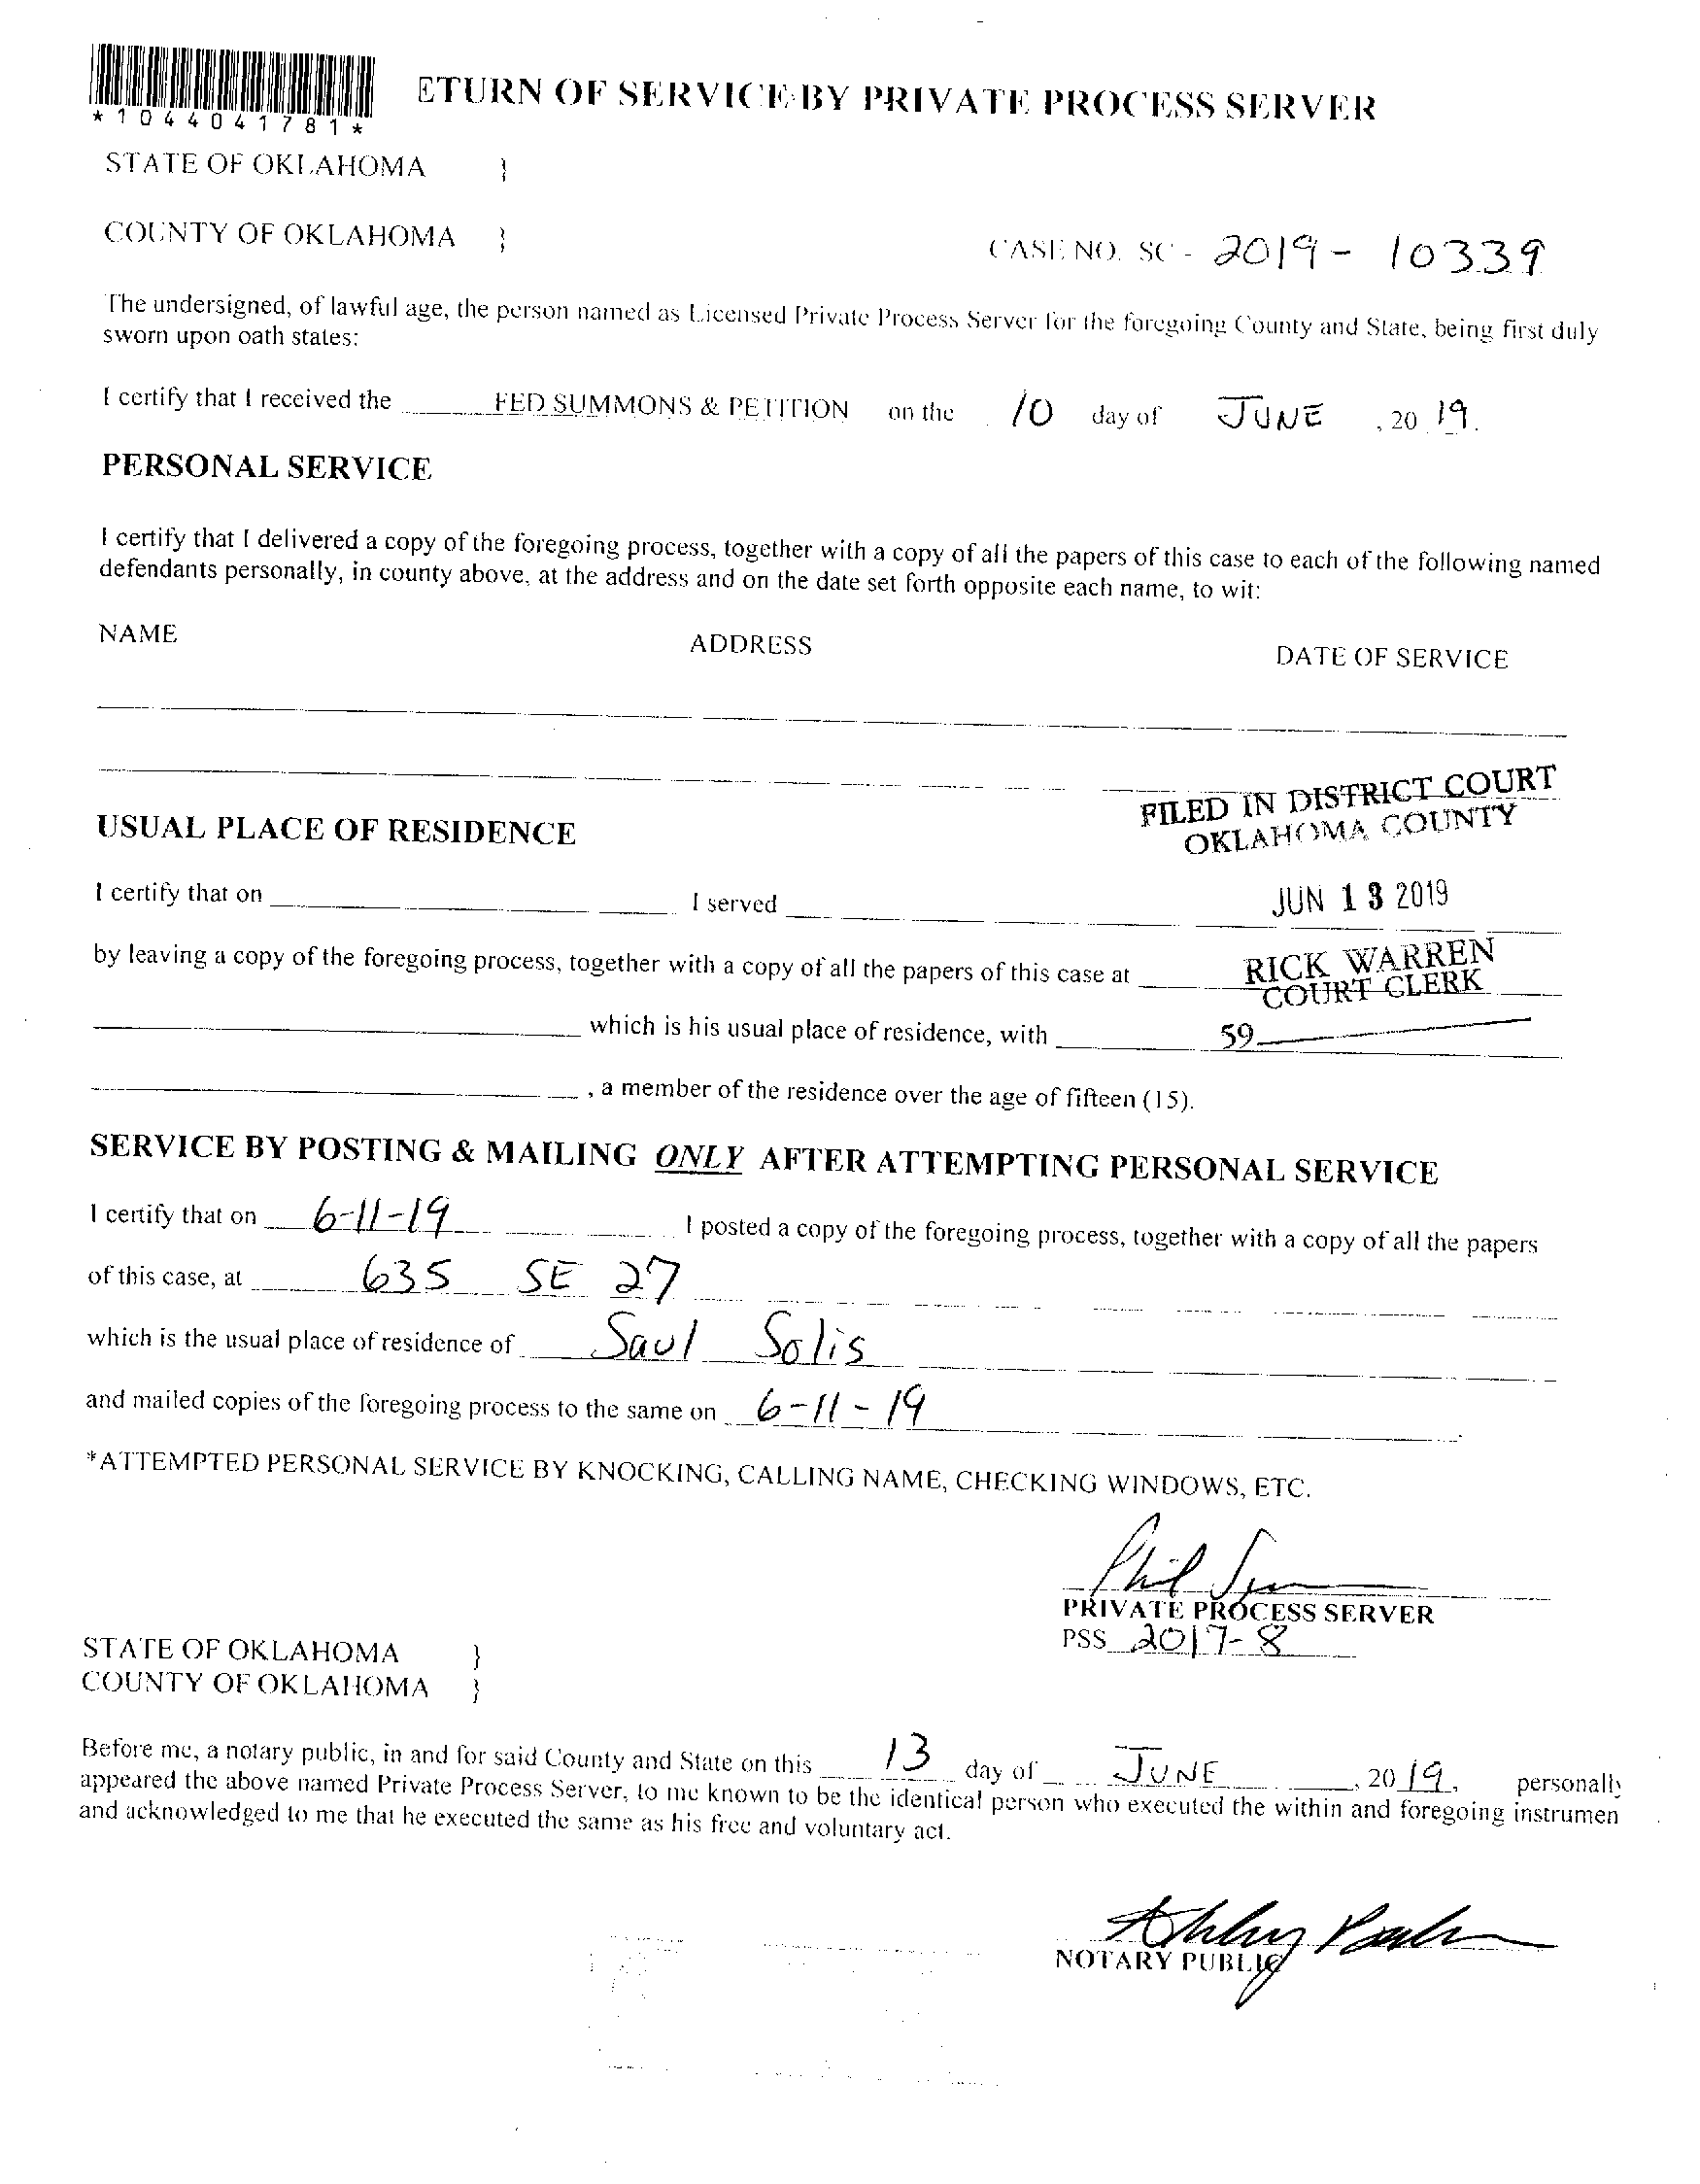 *1044041781*
ETURN OF SERVICE BY PRIVATE PROCESS SERVER
STATE OF OKLAHOMA }
COUNTY OF OKLAHOMA }
CASE NO. SC - 2019 - 10339
The undersigned, of lawful age, the person named as Licensed Private Process Server for the foregoing County and State, being first duly
sworn upon oath states:
I certify that I received the FED SUMMONS & PETITION on the 10 day of JUNE , 20 19.
PERSONAL SERVICE
I certify that I delivered a copy of the foregoing process, together with a copy of all the papers of this case to each of the following named
defendants personally, in county above, at the address and on the date set forth opposite each name, to wit:
NAME ADDRESS DATE OF SERVICE
FILED IN DISTRICT COURT
OKLAHOMA COUNTY
USUAL PLACE OF RESIDENCE
I certify that on I served
JUN 13 2019
by leaving a copy of the foregoing process, together with a copy of all the papers of this case at
RICK WARREN
COURT CLERK
which is his usual place of residence, with
59
, a member of the residence over the age of fifteen (15).
SERVICE BY POSTING & MAILING ONLY AFTER ATTEMPTING PERSONAL SERVICE
I certify that on 6-11-19 I posted a copy of the foregoing process, together with a copy of all the papers
of this case, at 635 SE 27
which is the usual place of residence of Saul Solis
and mailed copies of the foregoing process to the same on 6-11-19
*ATTEMPTED PERSONAL SERVICE BY KNOCKING, CALLING NAME, CHECKING WINDOWS, ETC.
Phil
PRIVATE PROCESS SERVER
PSS 2017-8
STATE OF OKLAHOMA }
COUNTY OF OKLAHOMA }
Before me, a notary public, in and for said County and State on this 13 day of JUNE , 20 19, personally
appeared the above named Private Process Server, to me known to be the identical person who executed the within and foregoing instrumen
and acknowledged to me that he executed the same as his free and voluntary act.
Ashley
NOTARY PUBLIC